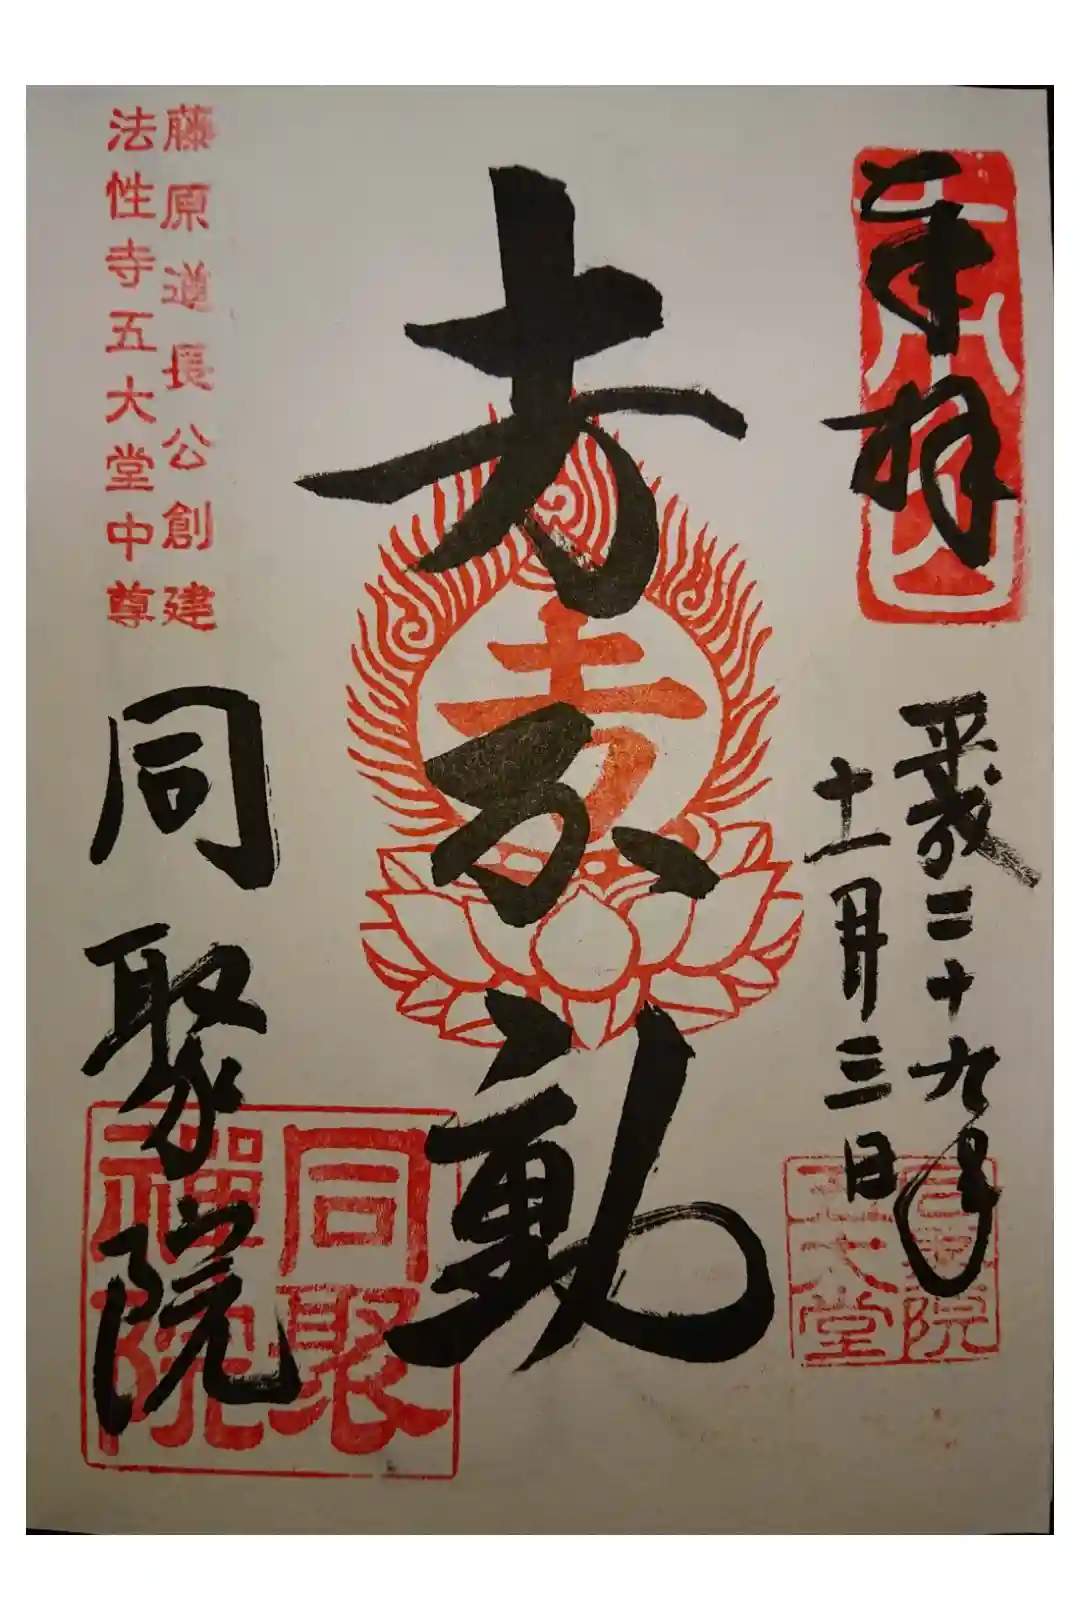 奉拝
平成二十九年
十一月三日
同聚院
五大堂
不動
藤原道長公創建
法性寺五大堂中尊
同聚院
同聚
禪院